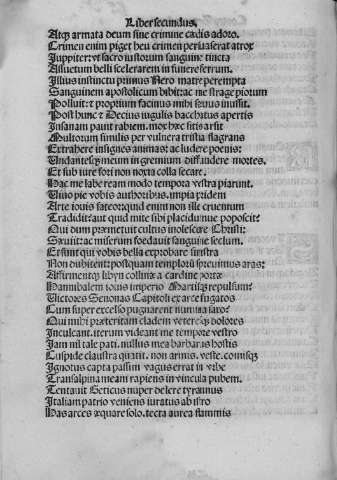 Liber secundus.
Atq; armata deum sine crimine cædis adoro.
Crimen enim piget heu crimen persuaserat atrox
Iuppiter: vt sacro iustorum sanguine tincta
Assuetum belli scelerarem in funere ferrum.
Illius instinctu primus Nero matre perempta
Sanguinem apostolicum bibit: ac me strage piorum
Polluit: & proprium facinus mihi seuus inussit.
Post hunc & Decius iugulis bacchatus apertis
Insanam pauit rabiem. mox hæc sitis arsit
Multorum similis per vulnera tristia flagrans
Extrahere insignes animas: ac ludere poenis:
Vndantesq; meum in gremium diffundere mortes.
Et sub iure fori non noxia colla secare.
Hac me labe ream modo tempora vestra piarunt.
Viuo pie vobis authoribus. impia pridem
Arte iouis fateor: quid enim non ille cruentum
Tradidit: aut quid mite sibi placidumue poposcit?
Qui dum præmetuit cultus inolescere Christi:
Sæuiit: ac miserum foedauit sanguine seclum.
Et sunt qui vobis bella exprobrare sinistra
Non dubitent: postquam templorum spreuimus aras:
Affirmentq; libyn collinæ a cardine portæ
Hannibalem iouis imperio Martisq; repulsum?
Victores Senonas Capitoli ex arce fugatos
Cum super excelso pugnarent numina saxo?
Qui mihi præteritam cladem veteresq; dolores
Inculcant. iterum videant me tempore vestro
Iam nil tale pati. nullus mea barbarus hostis
Cuspide claustra quatit. non armis. veste. comisq;
Ignotus capta passim vagus errat in vrbe
Transalpina meam rapiens in vincula pubem.
Tentauit Geticus nuper delere tyrannus
Italiam patrio veniens iuratus ab istro
Has arces æquare solo. tecta aurea flammis